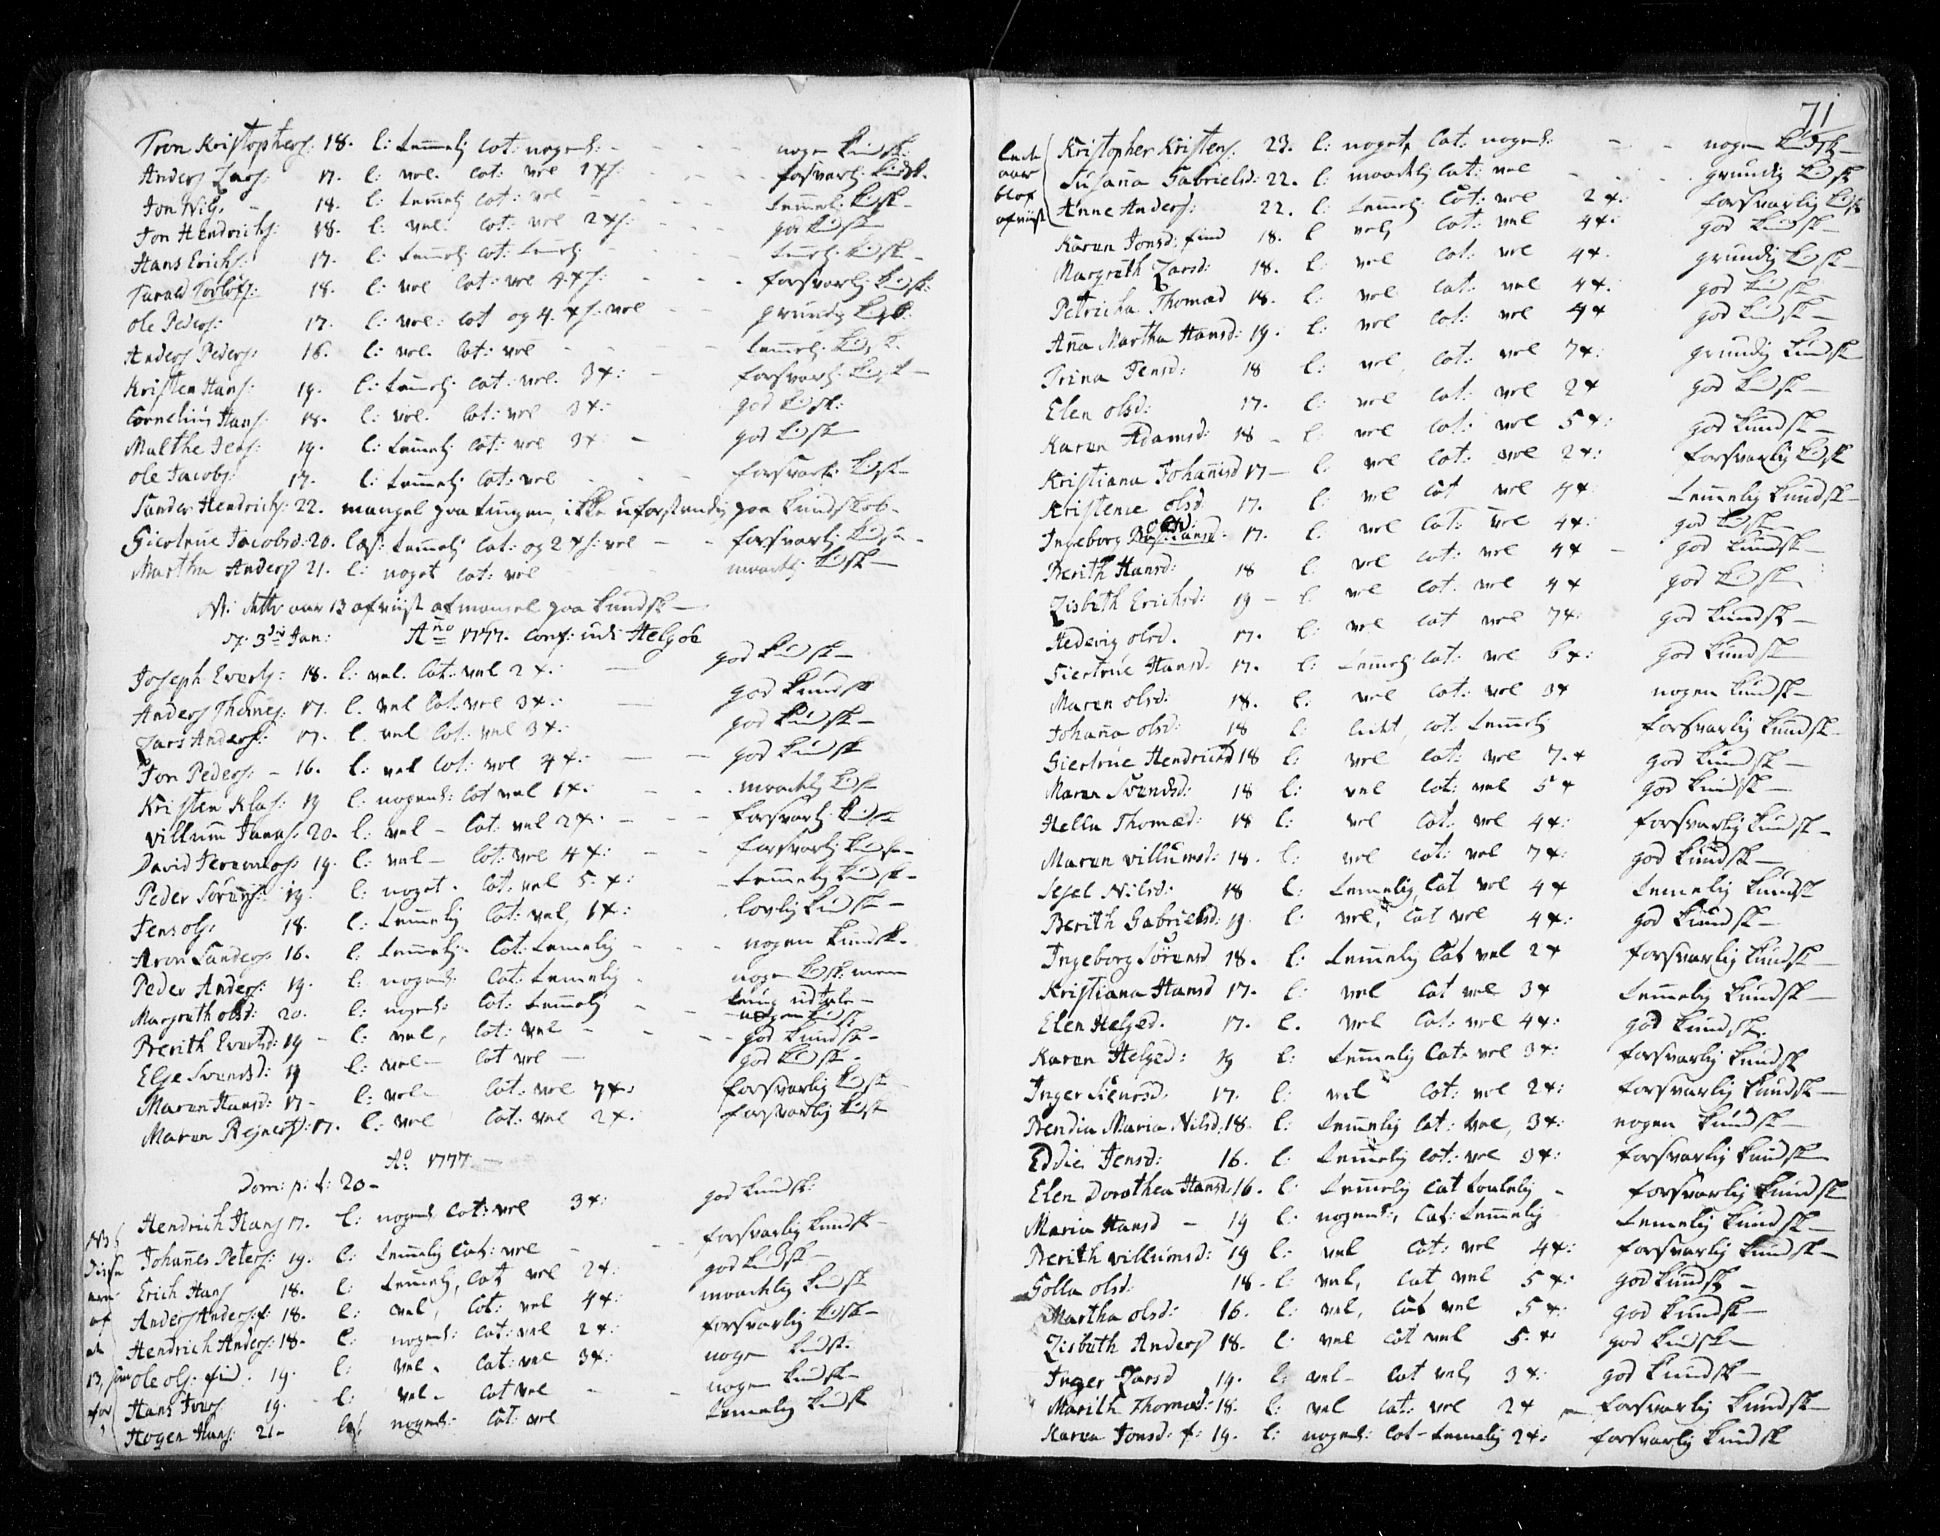 Tron Kristophers: 18. l: temmelj Cat: nogenl: - - - - nogen kundsk:
Anders Lars: 17. l: vel. Cat: vel 1 x: - - - forsvarl: kundsk.
Jon Nils. - 18. l: temmelj Cat: vel - - - temmel: kdsk -
Jon Hendrichs: 18. l: vel: Cat: vel 2 x: - - - god kdsk
Hans Erichs: 17. l: temmelj Cat: temelj - - - temelj: kdsk -
Tarald Torlofs: 18. l: vel Cat: vel 4 x: - - - forsvarlj: kdsk:
Ole Peders: 17. l: vel: Cat og 4. x: vel - - grundig kdsk:
Anders Peders: 16. l: vel. Cat: vel - - - temmelj: kdsk.
Kristen Hans: 19. l: temelj: Cat: vel. 3 x: - forsvarlj: kdsk -
Cornelius Hans: 18. l: vel. Cat: vel 3 x: god kdsk:
Malthe Jens: 19. l: temelj: Cat: vel 3 x: - god kdsk
Ole Jacobs: 17. l: temmelj Cat: vel - - - forsvarl: kdsk -
Sander Hendrichs: 22. mangel paa tungen, ikke uforstandig paa kundskab -
Giertrue Jacobsd: 20. læs: temmelj Cat: og 2 x: vel - - forsvarlj: kdsk -
Martha Anders 21. l: noget Cat: vel maadelj: kdsk -
N: dette aar 13 afviist af mangel paa kundsk -
d: 3die Jan: Ano 1777. Conf: udi Helgöe
Joseph Everts: 18. l: vel. Cat: vel 2 x: - god kdsk -
Anders Thomes: 17. l. vel Cat. vel 3 x: - god kundsk
Lars Anders: 17. l. vel Cat: vel 3 x: god kdsk -
Jon Peders - 16. l: vel Cat: vel 4 x: - - god kdsk
Kristen Klas: 19 l: nogenl: Cat vel 1 x: - - maadelj kdsk
Villum Jonas: 20. l: vel - Cat: vel 2 x: - - - forsvarlj: kdsk
David Jeremias: 19. l: vel - Cat: vel 4 x: - - forsvarlj: kdsk -
Peder Sörens: 19. l: noget. Cat: vel 5. x: - temmelig kdsk -
Jens Ols: 18. l: temmelig Cat: vel, 1 x: lovlig kdsk -
Aron Sanders 16. l: temmelj. Cat: temelig - - - nogen kundsk.
Peder Anders: 19. l: nogenl: Cat: temelig - nogen kdsk: men
Margreth Olsd: 20. l: nogenl: Cat: temmelj - - tung udtale -
nogen kdsk
Berith Evertsd: 19 - l: vel, Cat: vel - - - god kundsk -
Else Svendsd: 19 l: vel - Cat vel - god kdsk -
Maren Hansd: 17 - l: vel - Cat: vel 7 x: forsvarlig kdsk
Maren Rejnertsd: 17. l: vel Cat: vel 2 x: forsvarlig kdsk
Ao 1777 -
Dom: p: t: 20 -
Hendrich Hans 17. l: nogenl, Cat: vel 3 x: god kundsk:
NB
disse
ere
af
de
13, som
Johannes Peters: 19. l: temmelig Cat: vel - - forsvarlig kundsk -
Erich Hans 18. l: temmelj, Cat vel 2 x: god kdsk -
Anders Anders: f: 18. l: vel, Cat: vel 4 x: maadelig kundsk
Hendrich Anders: 18. l: nogenl: Cat: vel 2 x: forsvarlig kdsk -
Ole Ols: find. 19. l: vel. Cat: vel 3 x: nogen kundsk:
Hans Ivers 19. l: vel. Cat vel - - nogen kundsk -
Hogen Hans: 21 - læs: nogenl: Cat: vel temelig kdsk
71
aar
blef
afviist
Kristopher Kristens: 23. l: noget, Cat: nogenl: - - nogen kdsk -
Susana Gabrielsd: 22. l: maadelj Cat: vel - - grundig kdsk
Anne Anders: 22. l: temelj Cat: vel 2 x: forsvarlig kdsk
Karen Jonsd: find 18. l vel, Cat: vel 4 x: god kundsk -
Margreth Larsd: 18. l: vel Cat: vel 4 x: grundig kdsk -
Petricha Thomæd 18. l: vel Cat: vel 4 x: god kdsk
Ana Martha Hansd: 19. l: vel Cat: vel 4 x god kdsk -
Trina Jensd: 18 l: vel, Cat: vel 7 x: grundig kundsk
Elen Olsd: 17. l: vel Cat: vel 2 x god kdsk -
Karen Adamsd: 18 - l: vel Cat: vel 5 x: god kundsk -
Kristiana Johanisd 17 - l: vel Cat: vel 2 x: forsvarlig kdsk
Kristence Olsd 17. l: vel Cat vel 4 x: temmelig kundsk -
Ingeborg Olsd. 17. l: vel Cat: vel 4 x: god kdsk -
Berith Hansd: 18 l: vel Cat: vel 4 x - god kundsk -
Lisbeth Erichsd: 19 - l: vel Cat: vel 4 x god kdsk
Hedevig Olsd. 17. l: vel Cat vel 7 x: god kundsk -
Giertrue Hansd: 17. l: temelj: Cat: vel 6 x: god kundsk
Maren Olsd: 18. l: vel Cat: vel 3 x nogen kundsk -
Johana Olsd: 18 l: lidt, Cat: temmelj forsvarlig kundsk -
Giertrue Hendrichsd 18 l: vel Cat: vel 7. x god kundsk -
Maren Svendsd: 18 l: vel Cat: vel 5 x god kundsk -
Hella Thomæd: 18 l: vel Cat: vel 4 x: forsvarlig kundsk -
Maren Villumsd: 18. l: vel Cat: vel 7 x: god kundsk -
Sesel Nilsd: 18 l: temelig, Cat vel 4 x temelig kundsk
Berith Gabrielsd: 19. l: vel, Cat vel 4 x: god kundsk -
Ingeborg Sörensd 18. l: temmelig Cat vel 2 x forsvarlig kundsk -
Kristiana Hansd 17. l: vel Cat vel 3 x temmelig kundsk -
Elen Helgsd. 17. l. vel Cat: vel 4 x: god kundsk.
Karen Helgsd: 19 l: temmelig Cat. vel 3 x: forsvarlig kundsk
Inger Siversd: 17. l: vel Cat: vel 2 x: forsvarlig kundsk -
Bendia Maria Nilsd: 18. l: temmelig Cat: vel, 3 x: nogen kundsk -
Eddis Jensd: 16. l: temmelig Cat: vel 3 x: forsvarlig kundsk -
Elen Dorothea Hansd: 16. l: temmelig Cat taalelig - forsvarlig kundsk
Maria Hansd - 19 l: nogenl:, Cat: temmelig temelig kundsk -
Berith Villumsd: 19 l: vel Cat: vel 4 x: forsvarlig kundsk -
Golla Olsd: 18 - l: vel, Cat vel 5 x: god kundsk -
Martha Olsd: 16. l: vel, Cat vel 5 x: god kundsk -
Lisbeth Anders 18. l: vel Cat vel 5. x god kundsk -
Inger Larsd 19. l: vel - Cat vel, 3 x: god kundsk -
Marith Thomæd: 18. l: vel Cat: vel 2 x - forsvarlig kundsk -
Karen Jonsd: f: 19. l: nogenl: Cat - temelig 2 x: forsvarlig kundsk